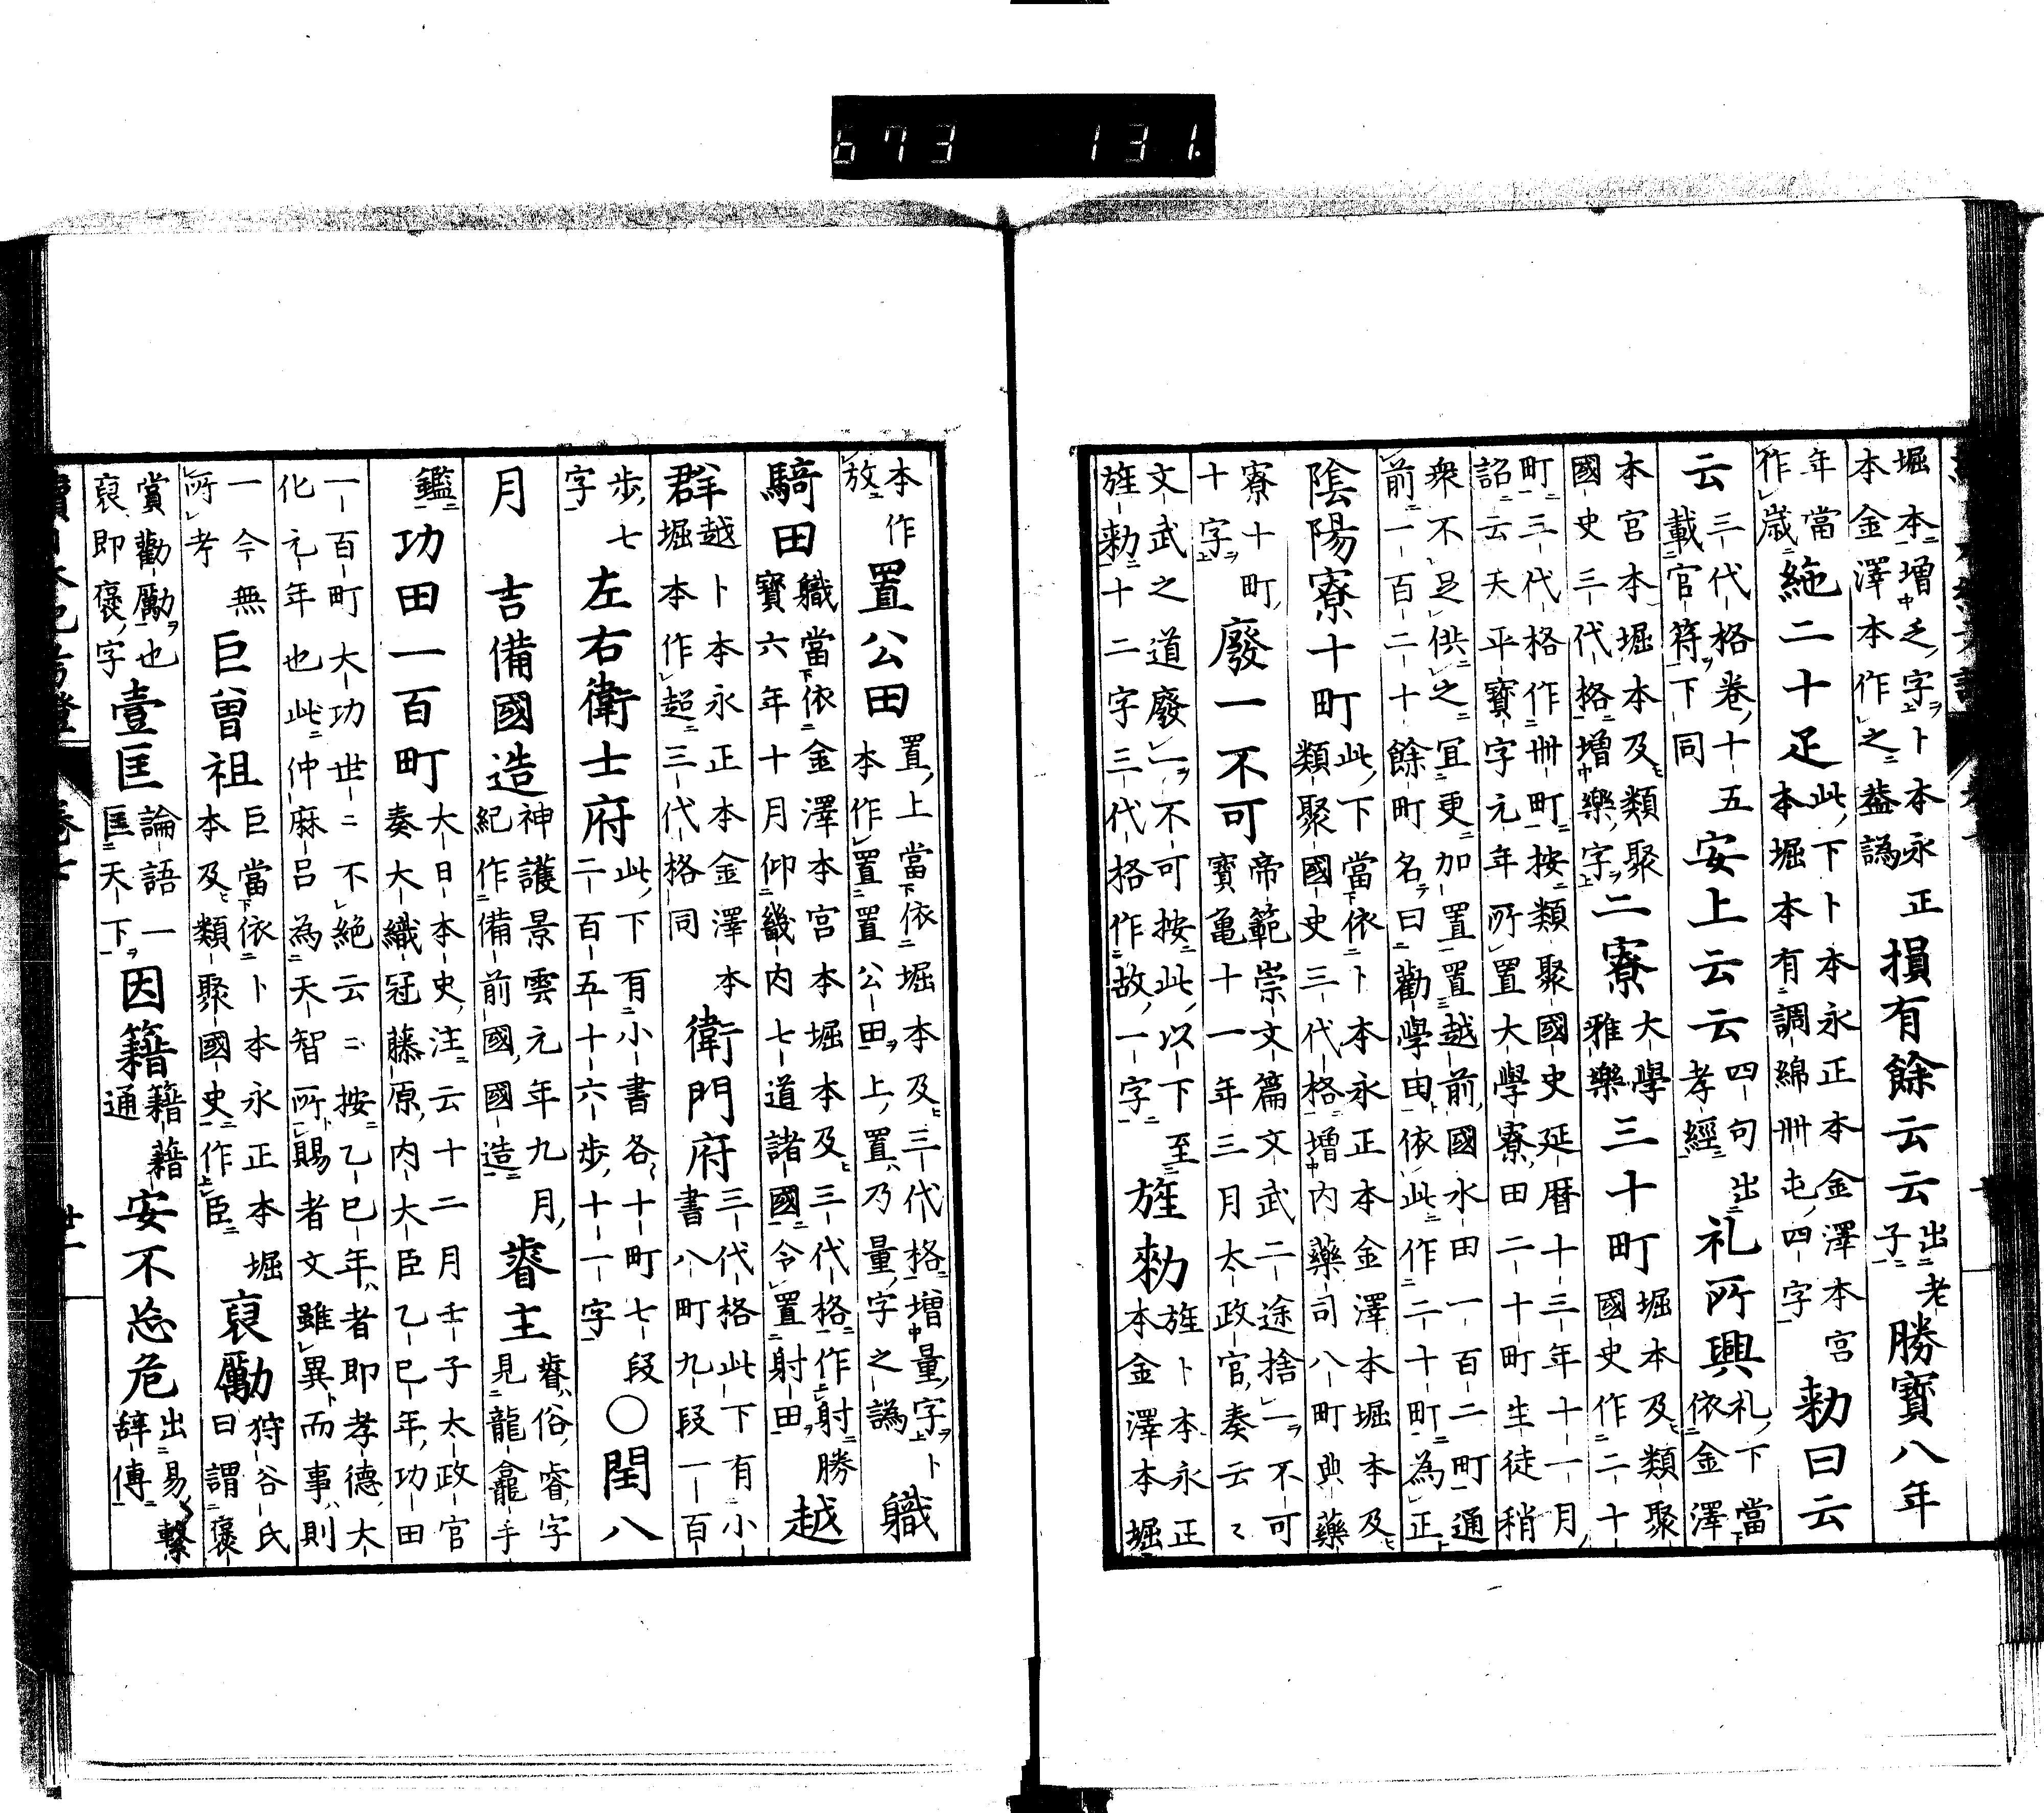 堀本増乏字卜本永正本金澤本作之益譌損有餘云云出老子勝寶八年
年當作歳絁二十疋此下卜本永正本金澤本宮本堀本有調綿卌屯四字勑曰云
云三代格卷十五載官符下同安上云云四句出孝經礼所興礼下當依金澤
本宮本堀本及類聚國史三代格増樂字二寮大學雅樂三十町堀本及類聚國史作二十
町三代格作卌町按類聚國史延曆十三年十一月詔云天平寶字元年所置大學寮田二十町生徒稍
衆不足供之宜更加置置越前國水田一百二町通前一百二十餘町名曰勸學田依此作二十町為正
陰陽寮十町此下當依卜本永正本金澤本堀本及類聚國史三代格増内藥司八町典藥
寮十町十字廢一不可帝範崇文篇文武二途捨一不可寶亀十一年三月太政官奏云々
文武之道廢一不可按此以下至旌勑十二字三代格作故一字旌勑旌卜本永正本金澤本堀
本作放置公田置上當依堀本及三代格増量字卜本作置置公田上置乃量字之譌職
騎田職當依金澤本宮本堀本及三代格作射勝寶六年十月仰畿内七道諸國令置射田越
群越卜本永正本金澤本堀本作超三代格同衛門府三代格此下有小書八町九段一百
步七字左右衛士府此下有小書各十町七段二百五十六步十一字〇閏八
月 吉備國造神護景雲元年九月紀作備前國國造睿主睿俗睿字見龍龕手
鑑功田一百町大日本史注云十二月壬子太政官奏大織冠藤原内大臣乙巳年功田
一百町大功世〻不絶云〻按乙巳年者即孝德大化元年也此仲麻呂為天智所賜者文雖異而事則
一今無所考巨曽祖巨當依卜本永正本堀本及類聚國史作臣裒勵狩谷氏曰謂褒
賞勸勵也裒即褒字壹匡論語一匡天下因籍籍藉通安不忘危出易繫辞傳
673 131.